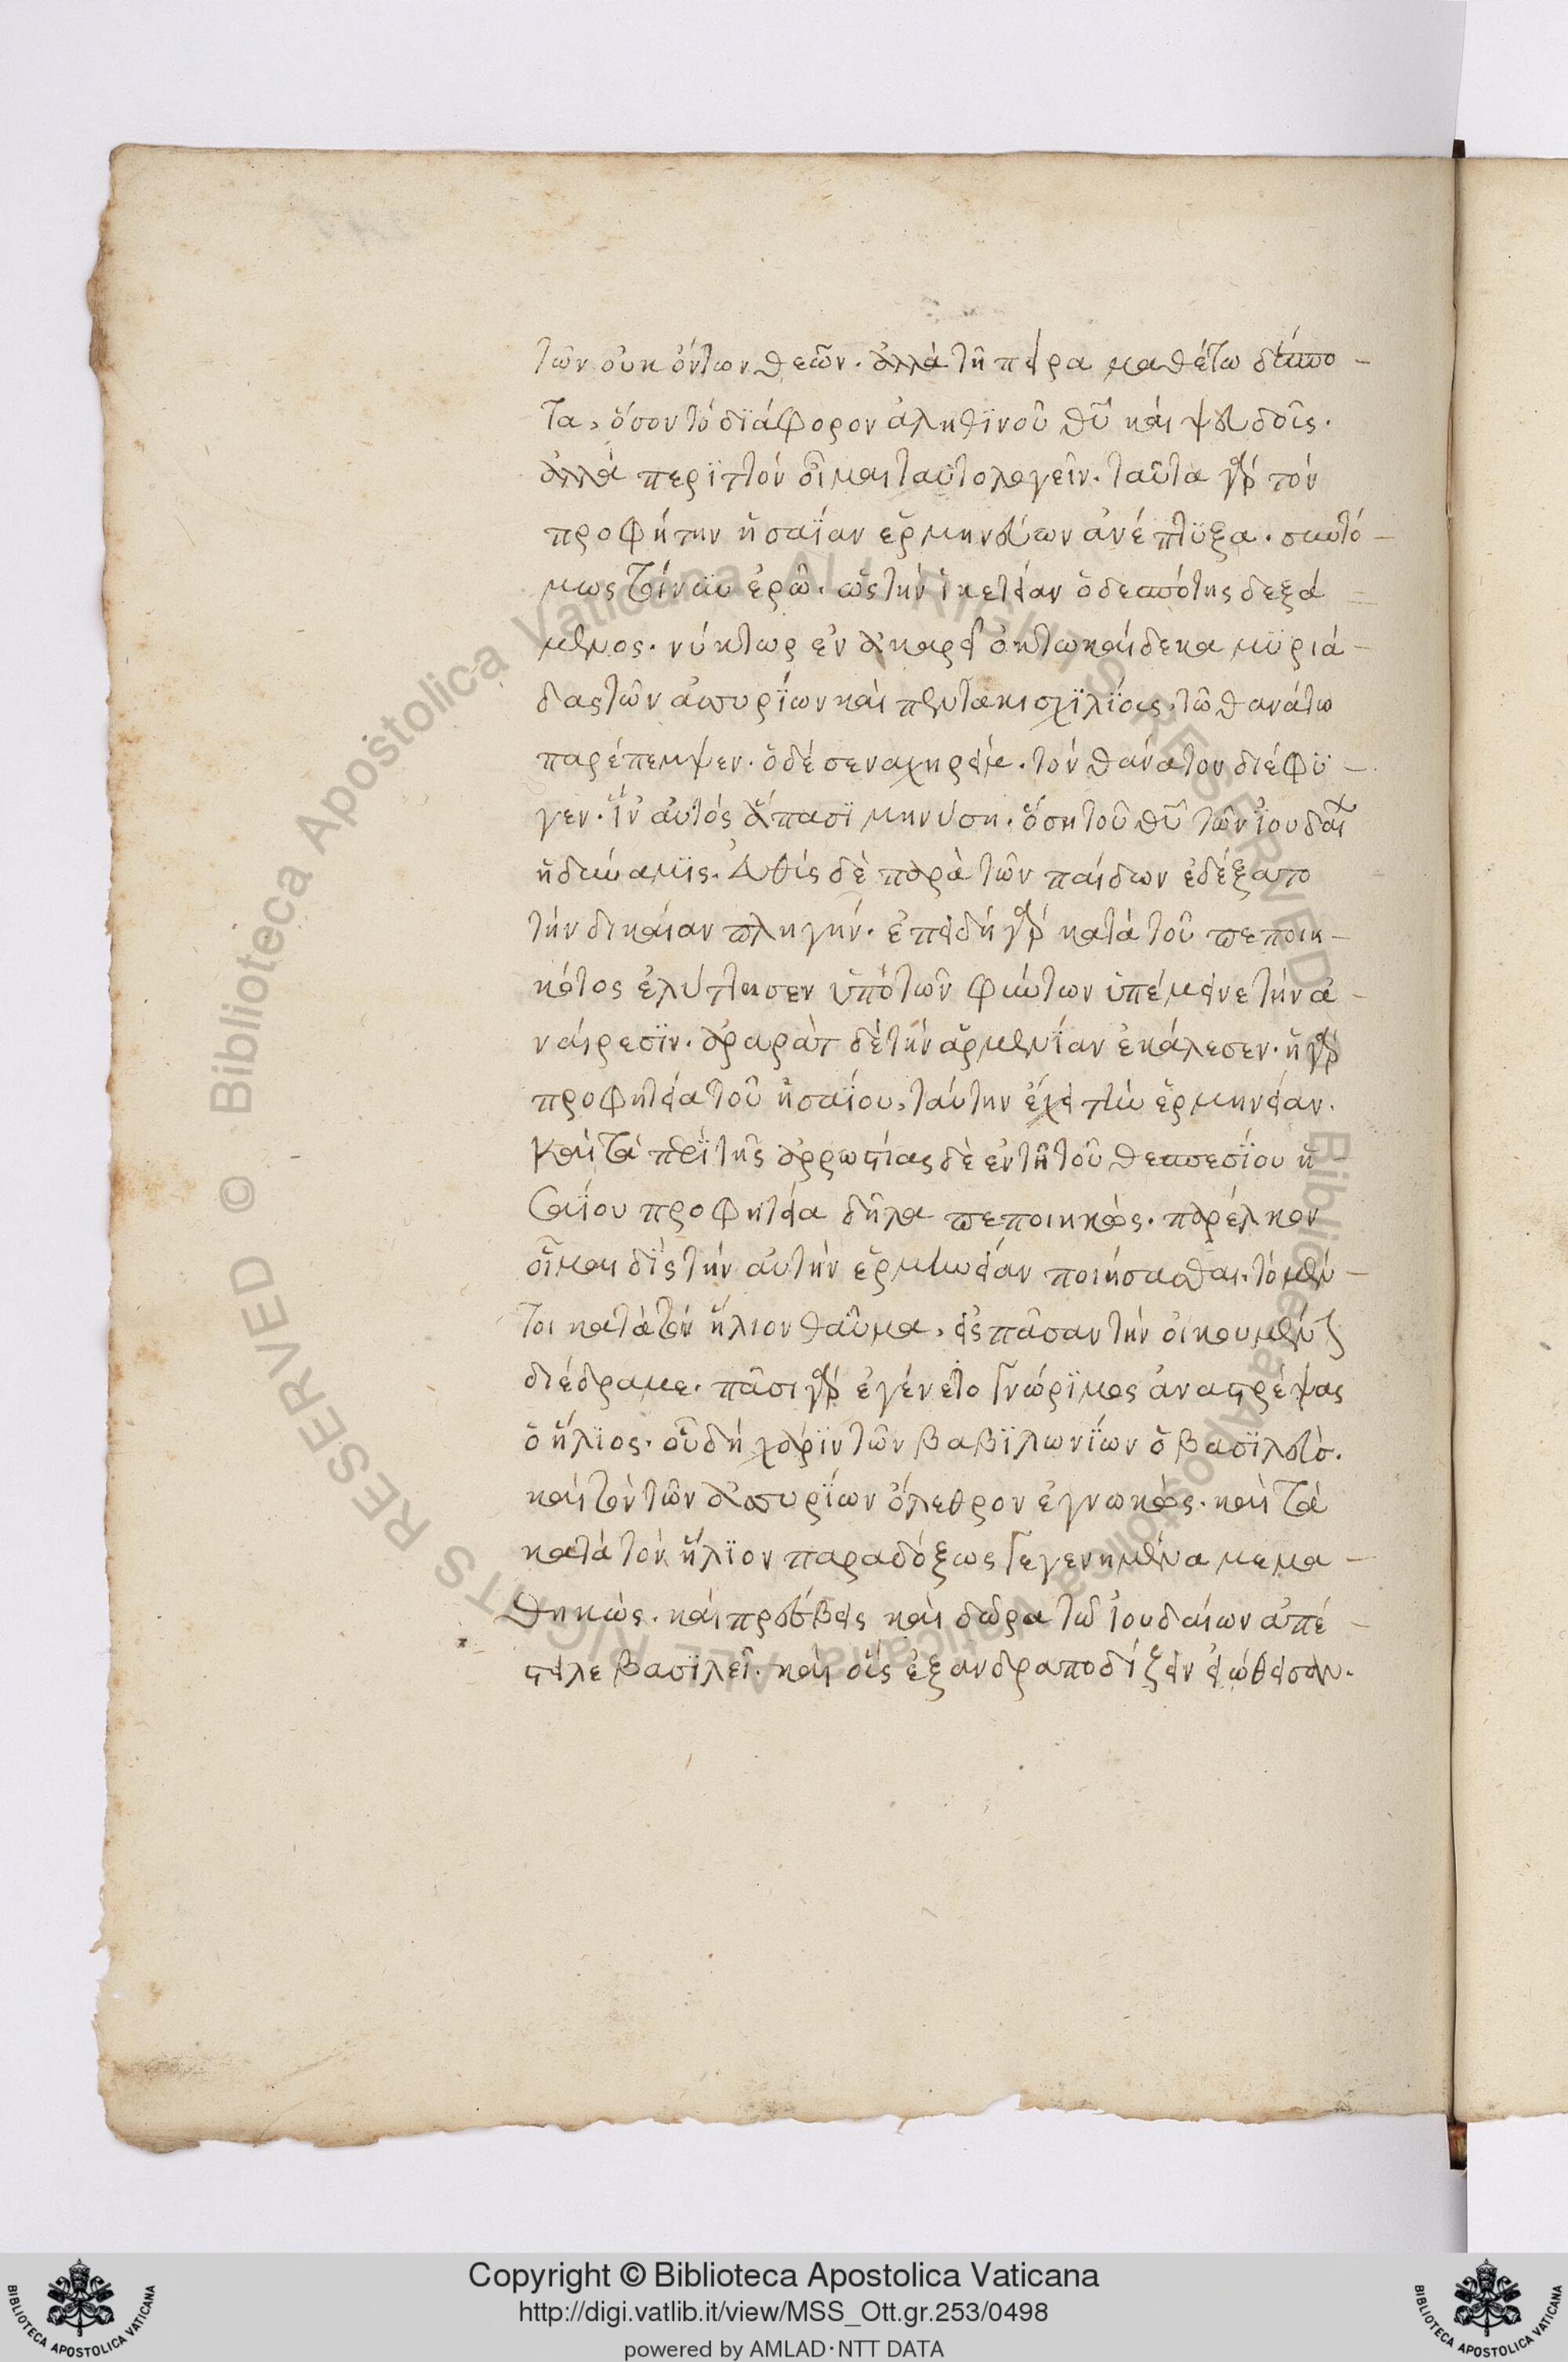 τῶν οὐκ ὄντων θεῶν. ἀλλὰ τῆ πείρα μαθέτω δέσπο-
τα, ὅσον τὸ διάφορον ἀληθινοῦ θῦ καὶ ψευδοῖς.
ἀλλὰ περιττὸν οἶμαι ταυτολογεῖν. ταῦτα γὰρ τὸν
προφήτην ἠσαΐαν ἑρμηνεύων ἀνέπτυξα. συντό-
μως τοίνυν ἐρῶ. ὡς τὴν ἱκετείαν ὁ δεσπότης δεξά
μενος. νύκτωρ ἐν ἀκαρεῖ ὀκτωκαίδεκα μυριά-
δας τῶν ἀσσυρίων καὶ πεντακισχιλίους τῶ θανάτω
παρέπεμψεν. ὁ δὲ σεναχηρείμ. τὸν θάνατον διέφυ-
γεν. ἵν αὐτὸς ἅπασι μηνύση. ὅση τοῦ θῦ τῶν ἰουδαί
ἡ δύναμις. Αὖθις δὲ παρὰ τῶν παίδων ἐδέξατο
τὴν δικαίαν πληγήν. ἐπειδὴ γὰρ κατὰ τοῦ πεποιη-
κότος ἐλύττησεν ὑπὸ τῶν φύντων ὑπέμεινε τὴν ἀ-
ναίρεσιν. ἀραρὰτ δὲ τὴν ἀρμενίαν ἐκάλεσεν. ἡ γὰρ
προφητεία τοῦ ἠσαΐου, ταύτην ἔχει τὴν ἑρμηνείαν.
καὶ τὰ περὶ τῆς ἀρρωστίας δὲ ἐν τῆ τοῦ θεσπεσίου ἠ
σαΐου προφητεία δῆλα πεποιηκὼς. παρέλκον
οἶμαι δὶς τὴν αὐτὴν ἑρμηνείαν ποιήσασθαι. τὸ μέν-
τοι κατὰ τὸν ἥλιον θαῦμα, εἰς πᾶσαν τὴν οἰκουμένην
διέδραμε. πᾶσι γὰρ ἐγένετο γνώριμος ἀναστρέψας
ὁ ἥλιος. οὗ δὴ χάριν τῶν βαβιλωνίων ὁ βασιλεὺς.
καὶ τὸν τῶν ἀσσυρίων ὄλεθρον ἐγνωκὼς. καὶ τὰ
κατὰ τὸν ἥλιον παραδόξως γεγενημένα μεμα-
θηκὼς. καὶ πρέσβεις καὶ δῶρα τῶ ἰουδαίων ἀπέ-
στειλε βασιλεῖ. καὶ οὓς ἐξανδραποδίζειν εἰώθεισαν.
Copyright © Biblioteca Apostolica Vaticana
http://digi.vatlib.it/view/MSS_Ott.gr.253/0498
powered by AMLAD·NTT DATA